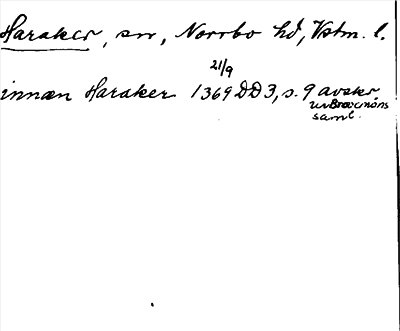 Haraker, sn, Norrbo hd, Vstm. l.
21/9
innæn Haraker 1369 DD3, s. 9 avskr.
ur Brocmans
saml.